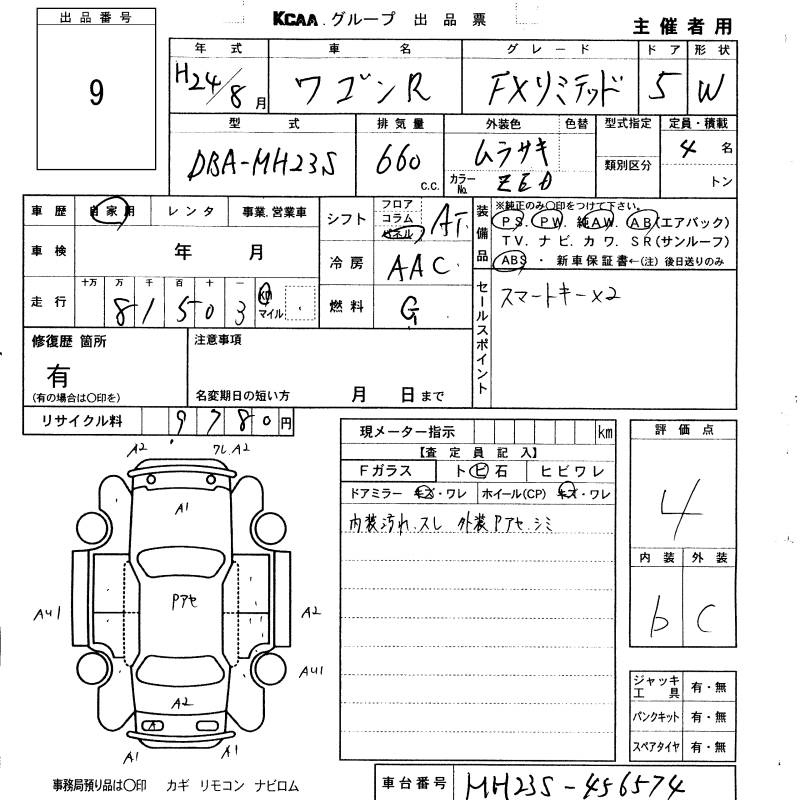 KCAA グループ 出品票
主催者用
出品番号
9
年式 車名 グレード ドア 形状
H24/8月 ワゴンR FXリミテッド 5 W
型式 排気量 外装色 色替 型式指定 定員・積載
DBA-MH23S 660 c.c. ムラサキ 4 名
カラーNo. ZED 類別区分 トン
車歴 自家用 レンタ 事業.営業車
シフト フロア コラム パネル AT
装備品
※純正のみ〇印をつけて下さい。
PS. PW. 純AW. AB(エアバック)
TV. ナビ. カワ. SR(サンルーフ)
ABS ・ 新車保証書←(注) 後日送りのみ
車検 年 月
冷房 AAC
走行 十万 万 千 百 十 一
81503 km マイル
燃料 G
セールスポイント
スマートキー×2
修復歴 箇所
有
(有の場合は〇印を)
注意事項
名変期日の短い方 月 日まで
リサイクル料 9780円
現メーター指示 km
【査定員記入】
Fガラス トビ石 ヒビワレ
ドアミラー キズ・ワレ ホイール(CP) キズ・ワレ
内装汚れ.スレ 外装Pアセ.シミ
評価点
4
内装 外装
b C
A2 ワレ A2
A1
Pアセ
AU1 A2
AU1
A2
A
A1 A1
ジャッキ工具 有・無
パンクキット 有・無
スペアタイヤ 有・無
事務局預り品は〇印 カギ リモコン ナビロム
車台番号 MH23S-456574